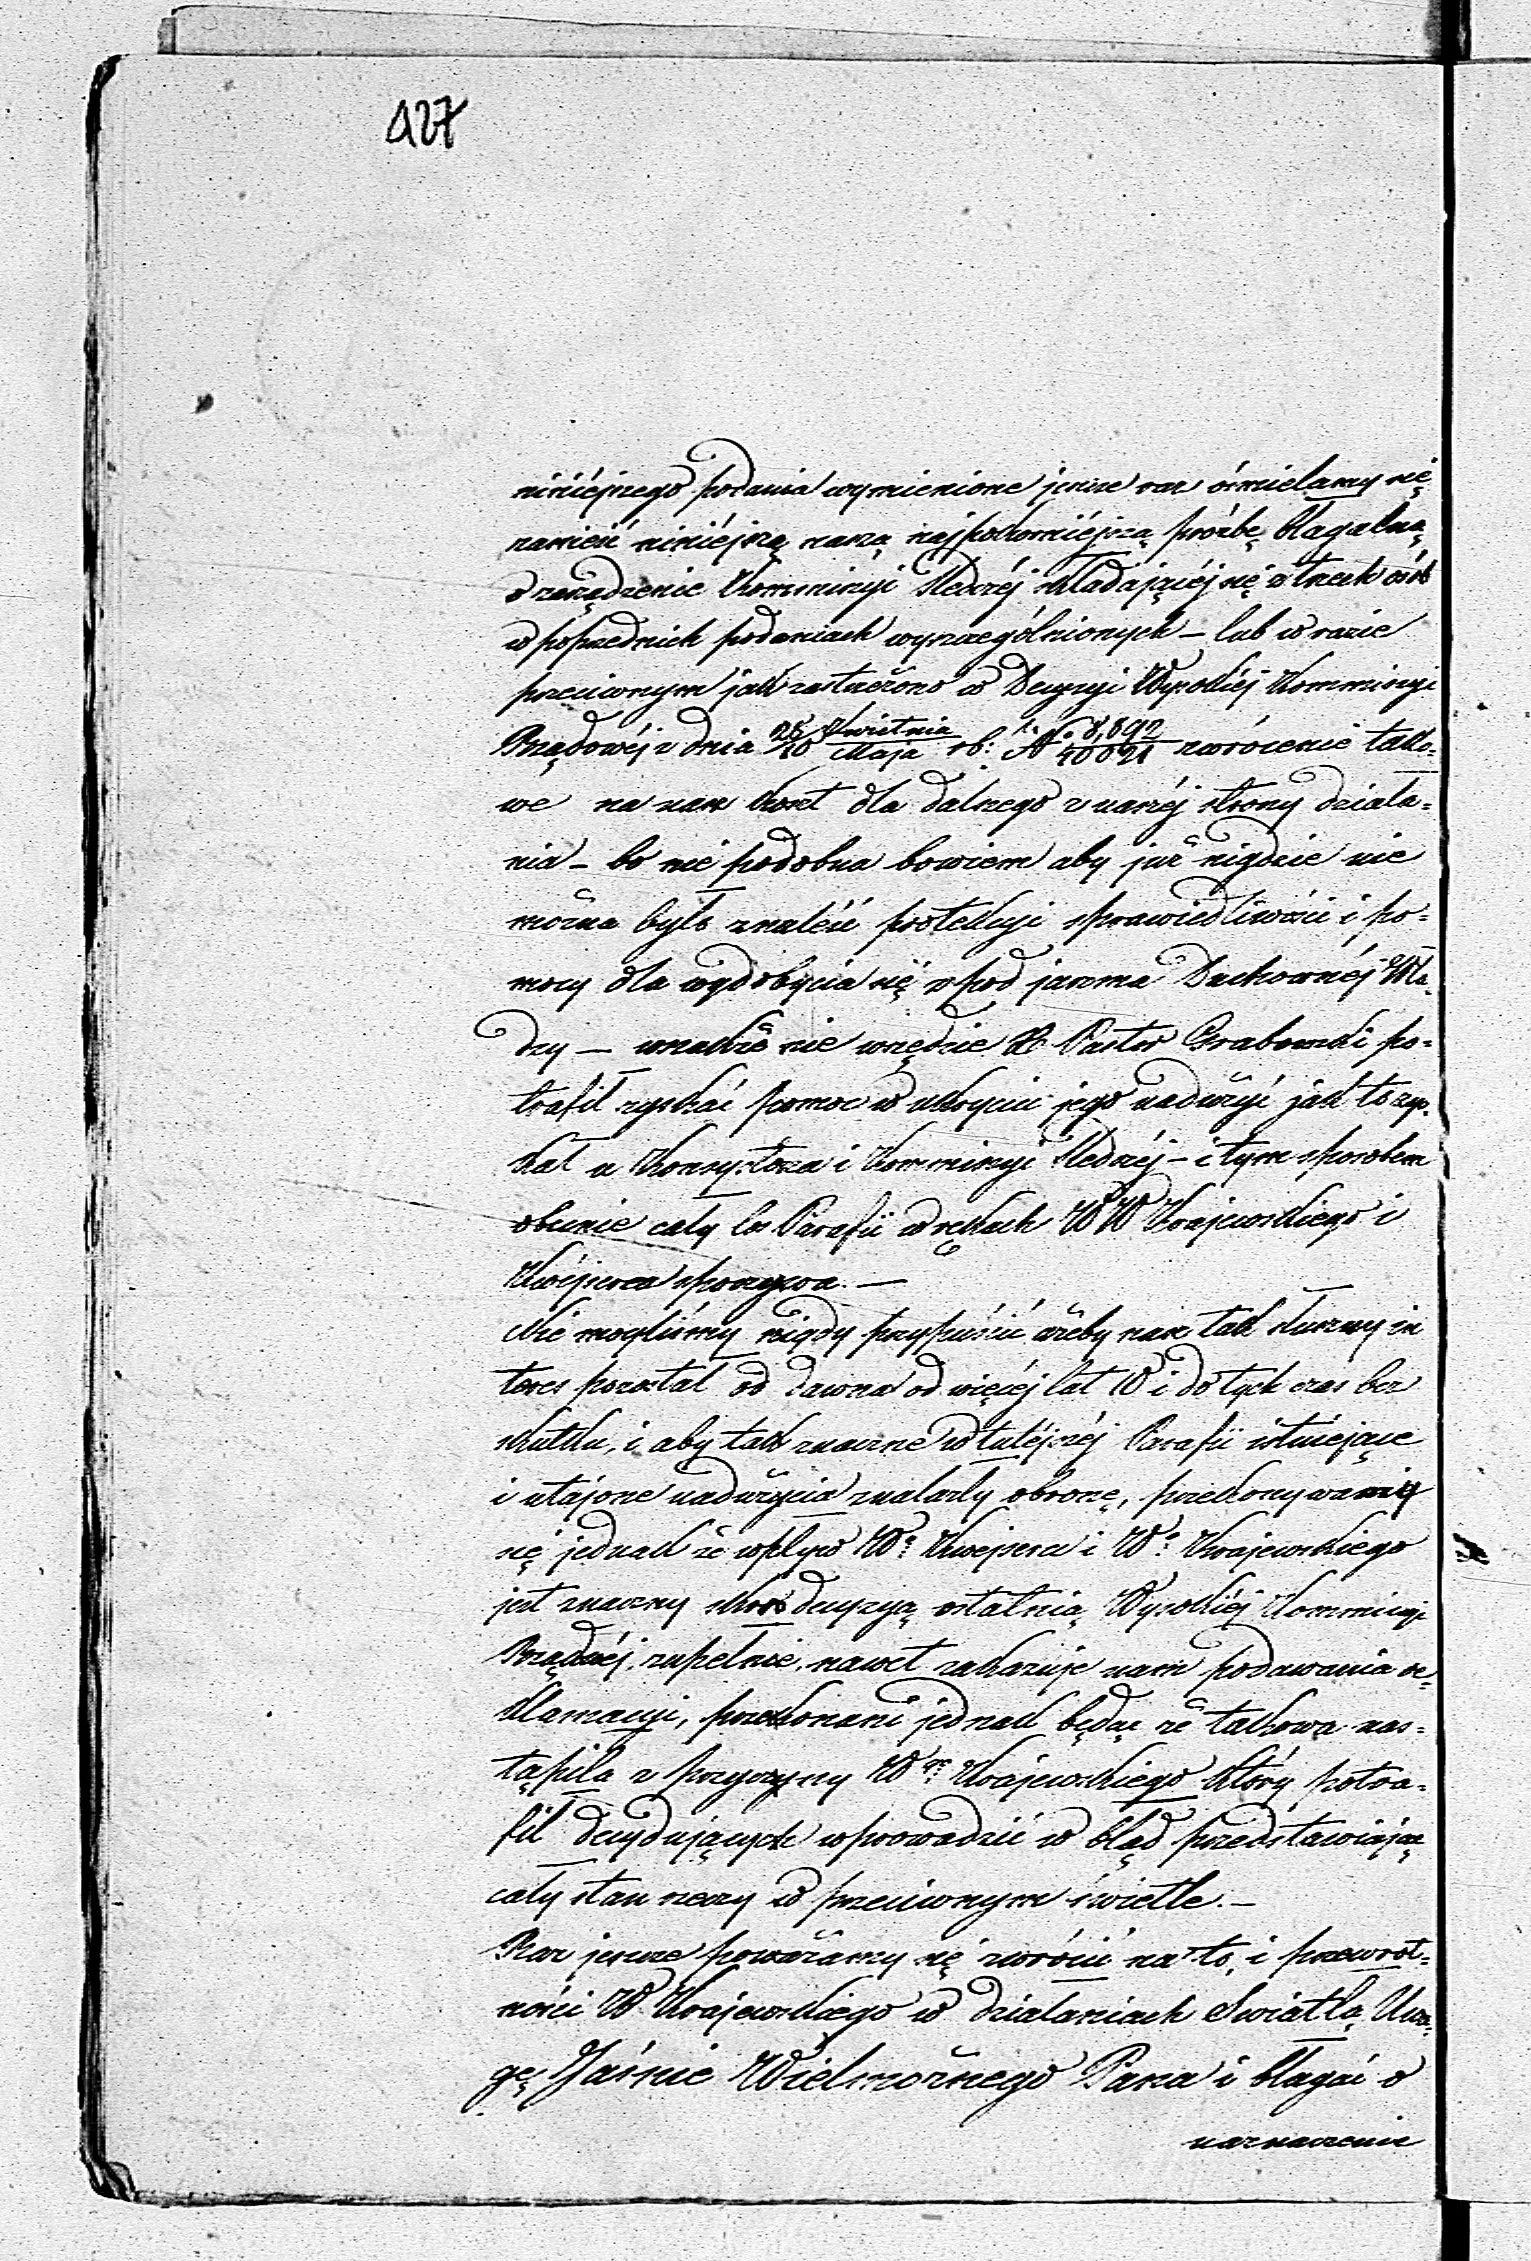 427
niniéjszego podania wymienione jeszcze raz ośmielamy się
zanieść niniéjszą naszą najpokorniéjszą prośbę błagalną
o zarządzenie Kommissyi Śledczéj składającéj się z trzech osób
w poprzednich podaniach wyszczególnionych – lub w razie
przeciwnym jak zastrzeżono w Decyzyi Wysokiéj Kommissyi
Rządowéj z dnia 28/10 Kwietnia/Maja rb: No 8,892/40021 zwrócenie tako=
we na nasz koszt dla dalszego z naszéj strony działa=
nia – bo nie podobna bowiem aby już nigdzie nie
można było znaléść protekcyi sprawiedliwości i po=
mocy dla wydobycia się z pod jarzma Duchownéj Wła=
dzy – wszakże nie wszędzie X Pastor Grabowski po=
trafił zyskać pomoc w ukryciu jego nadużyć jak to zys=
kał u Konsystorza i Kommissyi Śledczéj – i tym sposobem
obecnie cały los Parafii w rękach WW Krajewskiego i
Kwéjsera spoczywa. –
Nie mogliśmy nigdy przypuścić ażeby nasz tak słuszny in
teres pozostał od dawna od więcéj lat 10 i do tych czas bez
skutku, i aby tak znaczne w tutéjszéj Parafii istniejące
i utajone nadużycia znalazły obronę, przekonywamy
się jednak że wpływ Wo Kwejsera i Wo Krajewskiego
jest znaczny skoro decyzyą ostatnią Wysokiéj Kommissyi
Rządowéj, zupełnie, nawet zakazuje nam podawania re=
klamacyi, przekonani jednak będąc że takowa nas=
tąpiła z przyczyny Wgo Krajewskiego który potra=
fił decydujących wprowadzić w błąd przedstawiając
cały stan rzeczy w przeciwnym świetle. –
Raz jeszcze poważamy się zwrócić na to, i przewrot=
ności W Krajewskiego w działaniach Światłą Uwa=
gę Jaśnie Wielmożnego Pana i błagać o
naznaczenie